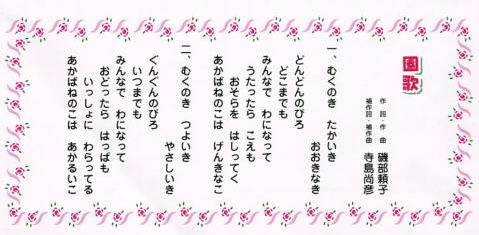 園歌
作詞・作曲 磯部頼子
補作詞・補作曲 寺島尚彦
一、むくのき たかいき
おおきなき
どんどんのびろ
どこまでも
みんなで わになって
うたったら こえも
おそらを はしってく
あかばねのこは げんきなこ
二、むくのき つよいき
やさしいき
ぐんぐんのびろ
いつまでも
みんなで わになって
おどったら はっぱも
いっしょに わらってる
あかばねのこは あかるいこ